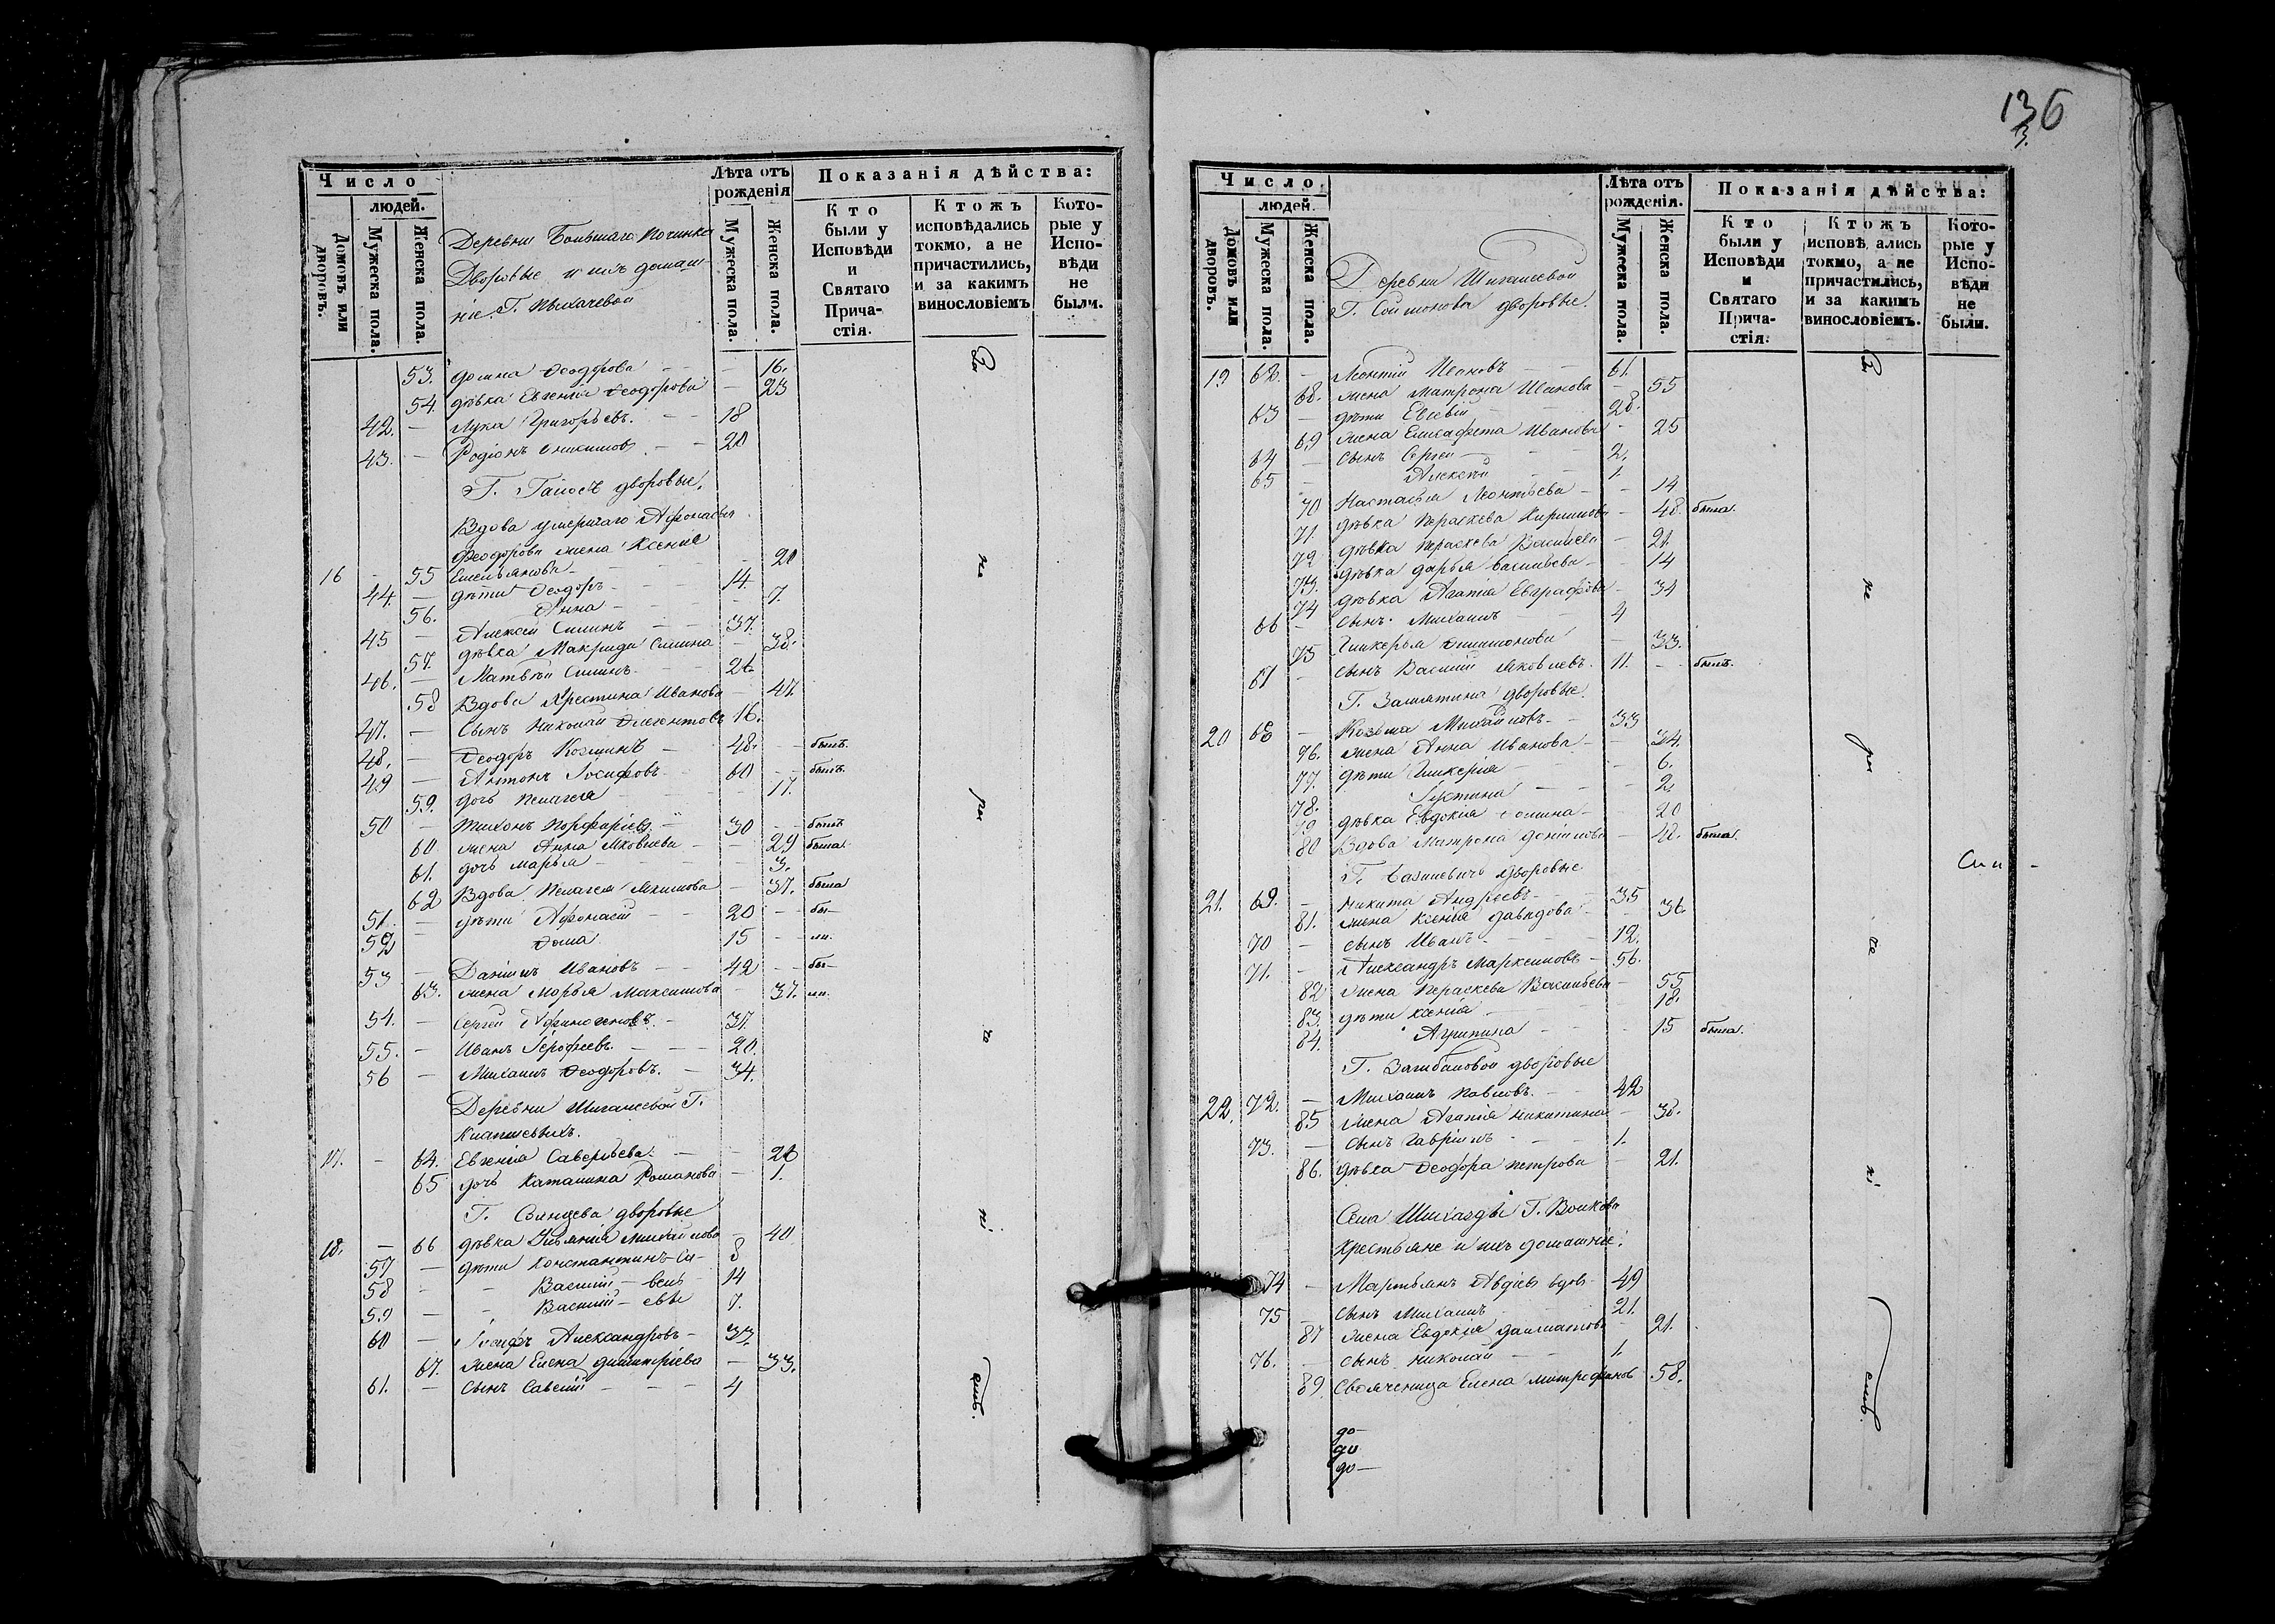 Число
людей.
Домовъ или дворовъ.
Мужеска пола.
Женска пола.
Деревни Большаго Починка
Дворовые и ихъ домаш-
ніе Г. Пыхачевой
Лѣта отъ рожденія
Мужеска пола.
Женска пола.
Показанія дѣйства:
Кто были у Исповѣди и Святаго Прича-стія.
Ктожъ исповѣдались токмо, а не причастились, и за какимъ винословіемъ
Кото-рые у Испо-вѣди не были.
53. домна Ѳеодорова - - 16.
54. дѣвка Евгенія Ѳеодорова - 23
42. - Лука Григорьевъ. - - 18
43. - Родіонъ - - 20
Г. дворовые.
Вдова умершаго Афонасья
Феодорова жена Ксенія
16 - 55 Емельянова - - 20
44. - дѣти Ѳеодоръ - - 14.
56. Анна - - 7.
45 - Алексѣй Силинъ - - 37.
57. дѣвка Макрида Силина - 38.
46. - Матвѣй Силинъ - 26.
58 Вдова Христина Иванова - 47
47. - Сынъ Николай 16.
48. - Ѳеодоръ Козминъ - 48. - - былъ.
49 - Антонъ Іосифовъ - 60 - - былъ.
59. дочь Пелагея - - 17.
50 - Тихонъ Порфиріевъ - 30 - - былъ
60 жена Анна Яковлева - - 29 была.
61. дочь марья - - 3.
62 Вдова Пелагея Якимова - 37. была
51. - дѣти Афонасій - - 20 - - бы-
52 Ѳома 15 - - ли.
53 - Даніилъ Ивановъ - - 42 - - бы-
63. жена Марья Максимова - 37. ли.
54. - Сергѣй Афиногеновъ. - 37.
55. - Иванъ Іерофеевъ - - 20.
56 - Михаилъ Ѳеодоровъ. - 34.
Деревни Шигалеевой Г.
17. - 64. Евгенія Савельева. - - 26
65 дочь Каталина Романова - 1.
Г. дворовые
18. - 66 дѣвка Ульяна Михайлова - 40
57 - дѣти Константинъ 8
58 - Василій 14
59 - Василій 7.
60 - Іосифъ Александровъ - 33.
67. жена Елена димитріева - 33.
61. - Сынъ Савелій - - 4
За
не
ра
че
ні
емъ.
136
Число
людей.
Домовъ или дворовъ.
Мужеска пола.
Женска пола.
Деревни Шигалеевой
Г. Соймонова дворовые.
Лѣта отъ рожденія.
Мужеска пола.
Женска пола.
Показанія дѣйства:
Кто были у Исповѣди и Святаго Прича-стія.
Ктожъ исповѣ ались токмо, а не причастились, и за какимъ винословіемъ.
Кото-рые у Испо-вѣди не были.
19 62. - Леонтій Ивановъ - 61.
68. жена Матрона Иванова - 55
63 - дѣти Евсевій - - 28.
69 жена Елисафета Иванова - 25
64 - Сынъ Сергѣй - - 2.
65 - Алексѣй - - 1.
70 Настасья Леонтьева - - 19
71. дѣвка Параскева Кирилова - 48. была.
72 дѣвка Параскева Васильева - 21.
73. дѣвка дарья васильева - - 14
74 дѣвка Агапія Евграфова - 34
66 - сынъ Михаилъ - - 4
75 Гликерья - 33.
67 - сынъ Василій Яковлевъ. 11. - - былъ.
Г. Замятина дворовые.
20 68 - Козьма Михайловъ - 33
76. жена Анна Иванова - - 34.
77. дѣти Гликерія - - 6.
78. Іустина - - 2.
79. дѣвка Евдокія - 20
80 Вдова Матрона данілова - 42. была.
Г. дворовые
21. 69. - Никита Андреевъ - - 35
81. жена Ксенія давидова - - 36.
70 - сынъ Иванъ - - 12.
71. - Александръ Марксимовъ - 56.
82 жена Параскева Васильева - 55
83. дѣти Ксенія - - 18.
84. Агрипина - - 15 была.
Г. дворовые
22. 72. - Михаилъ Павловъ - 42
85 жена Агапія Никитина - 38.
73. - сынъ Гавріилъ - - 1.
86. дѣвка Ѳеодора петрова - 21.
Села Шихазды Г. Волкова
Крестьяне и ихъ домашніе.
74 - Мартьянъ Авдіевъ вдов - 49
75 - сынъ Михаилъ - 21.
87 жена Евдокія далматова - 21.
76. - сынъ николай - - 1.
89. Свояченица Елена митрофанов 58.
до-
до
до-
За
не
ра
че
ні
емъ.